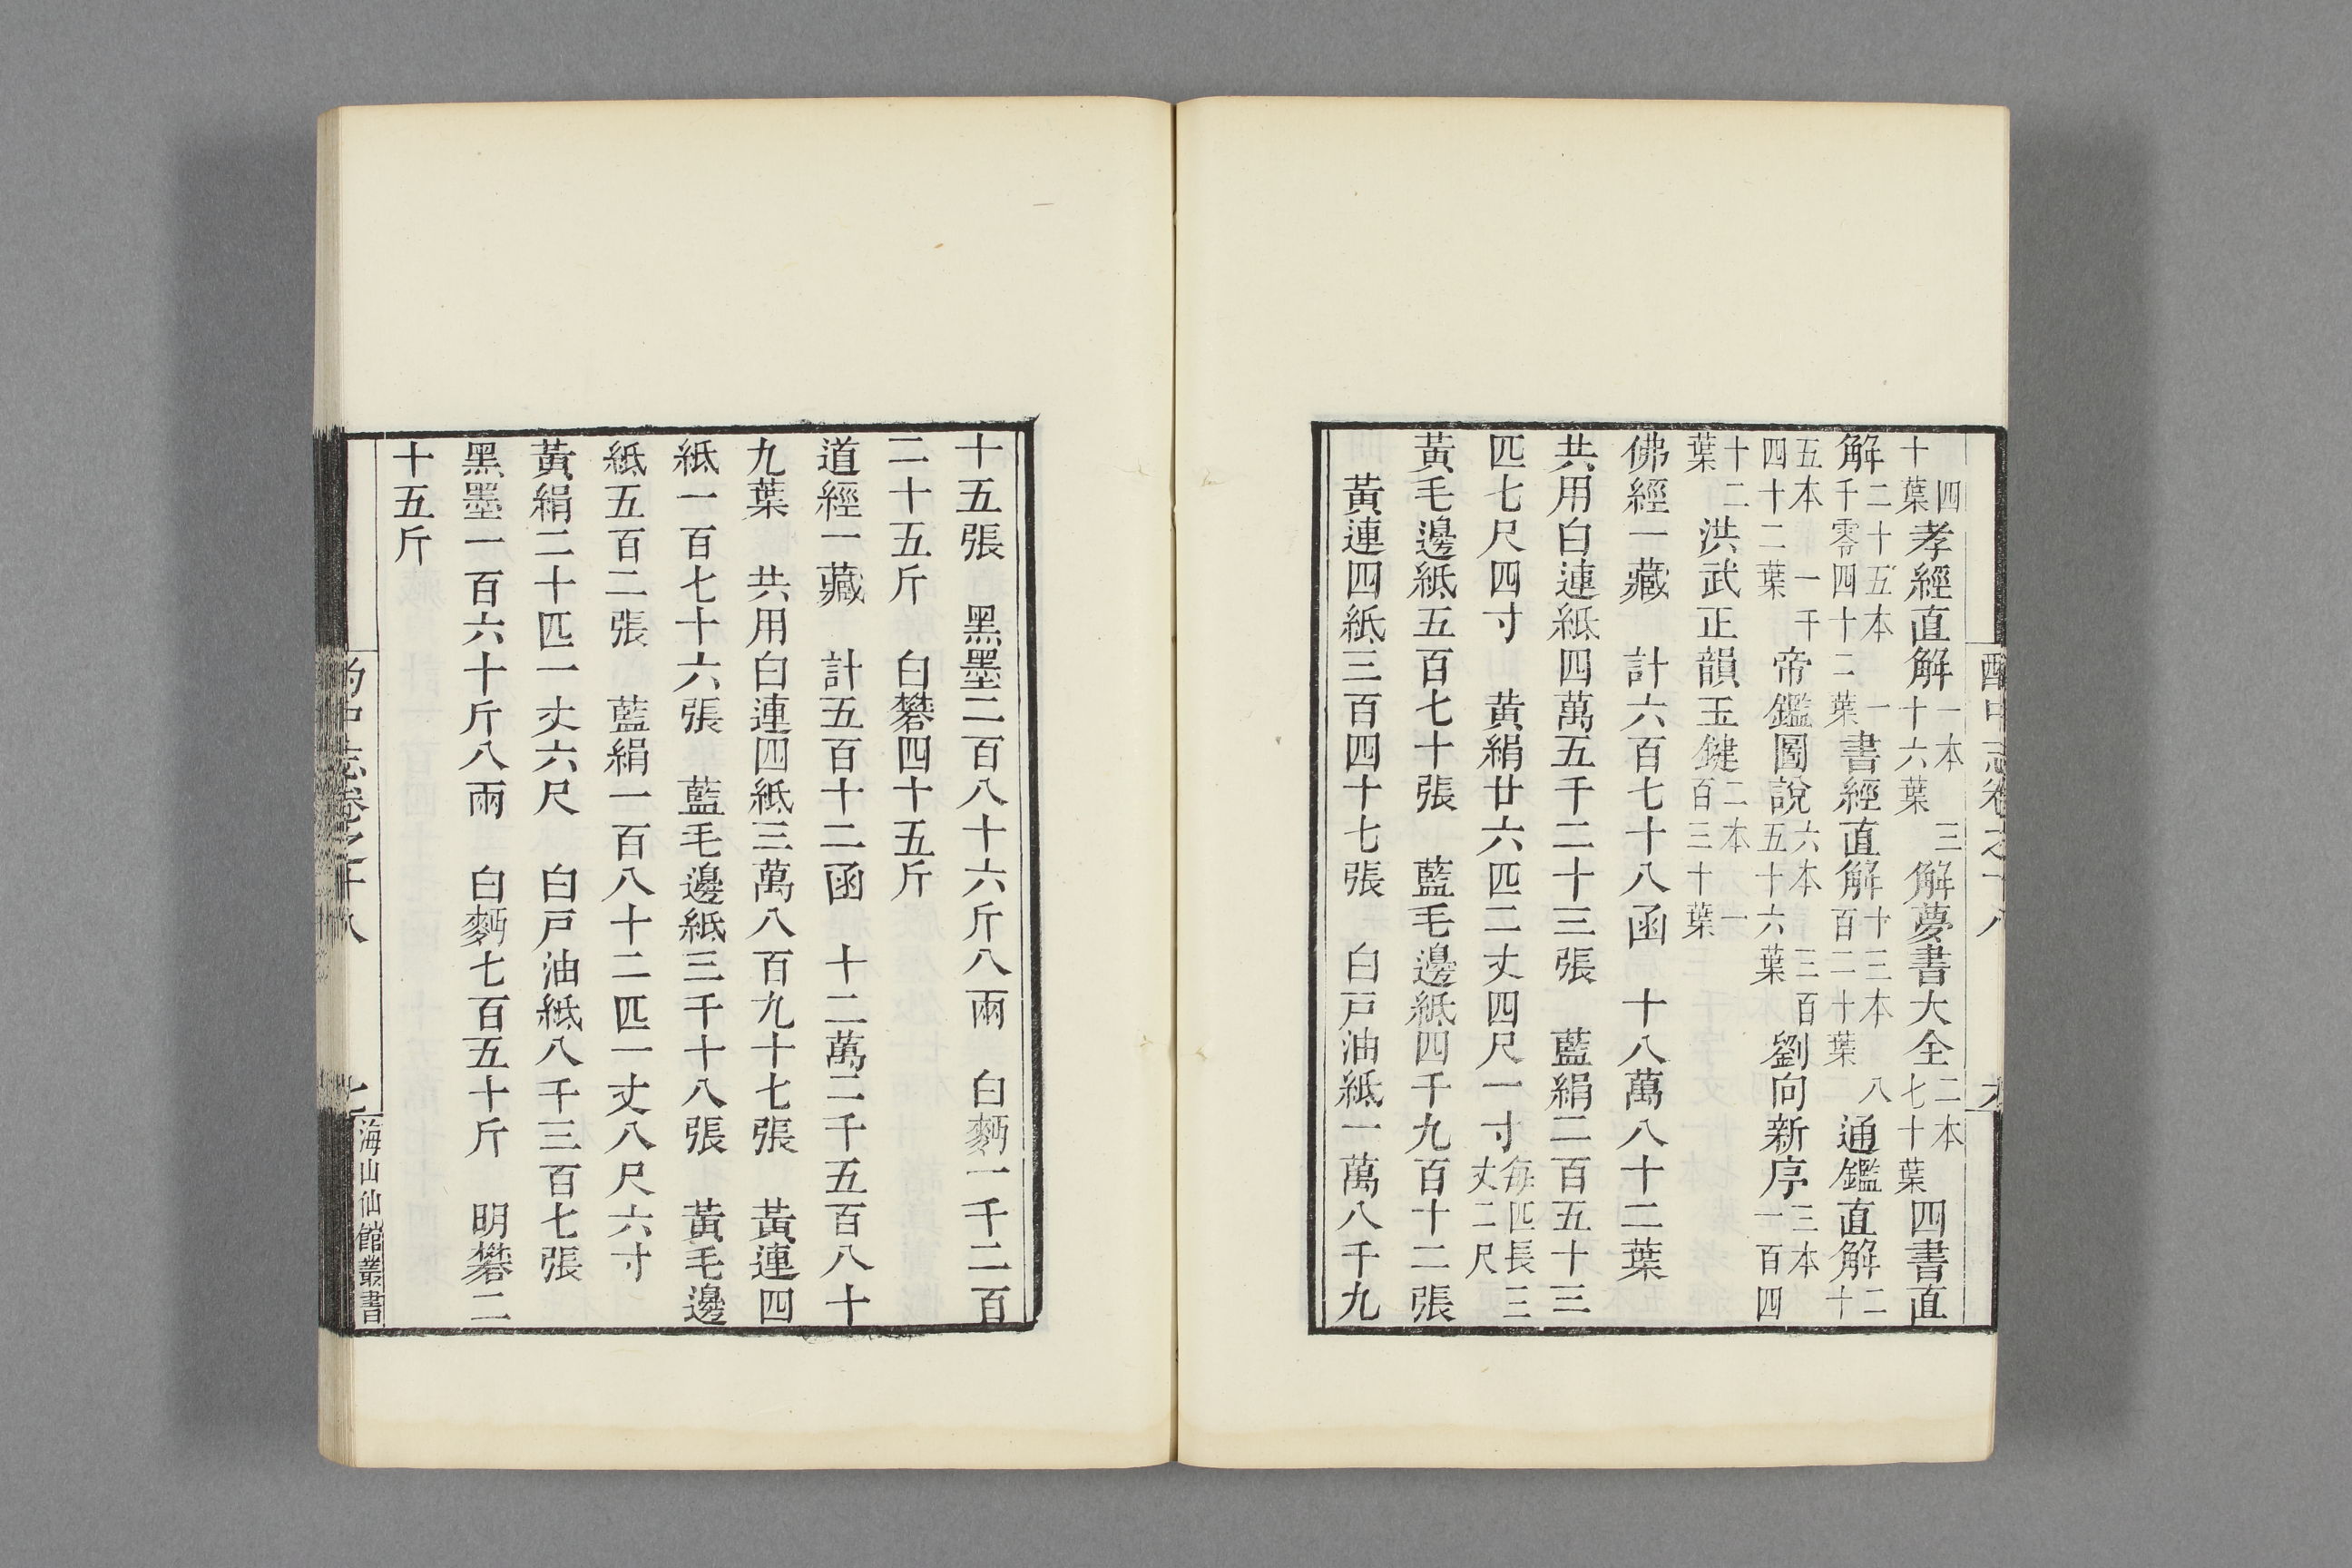 中志卷之十八
四十葉孝經直解一本三十六葉解夢書大全二本七十葉四書直
解二十五本一千零四十二葉書經直解十三本八百二十葉通鑑直解二十
五本一千四十二葉帝鑑圖說六本三百五十六葉劉向新序三本一百四
十二葉洪武正韻玉鍵二本一百三十葉
佛經一藏　計六百七十八函　十八萬八十二葉
共用白連紙四萬五千二十三張　藍絹二百五十三
匹七尺四寸　黃絹廿六匹二丈四尺一寸每匹長三丈二尺
黃毛邊紙五百七十張　藍毛邊紙四千九百十二張
黃連四紙三百四十七張　白戸油紙一萬八千九
十五張　黑墨二百八十六斤八兩　白麪一千二百
二十五斤　白礬四十五斤
道經一藏　計五百十二函　十二萬二千五百八十
九葉　共用白連四紙三萬八百九十七張　黃連四
紙一百七十六張　藍毛邊紙三千十八張　黃毛邊
紙五百二張　藍絹一百八十二匹一丈八尺六寸
黃絹二十匹一丈六尺　白戸油紙八千三百七張
黑墨一百六十斤八兩　白麪七百五十斤　明礬二
十五斤
中志卷之十八
海山仙館叢書